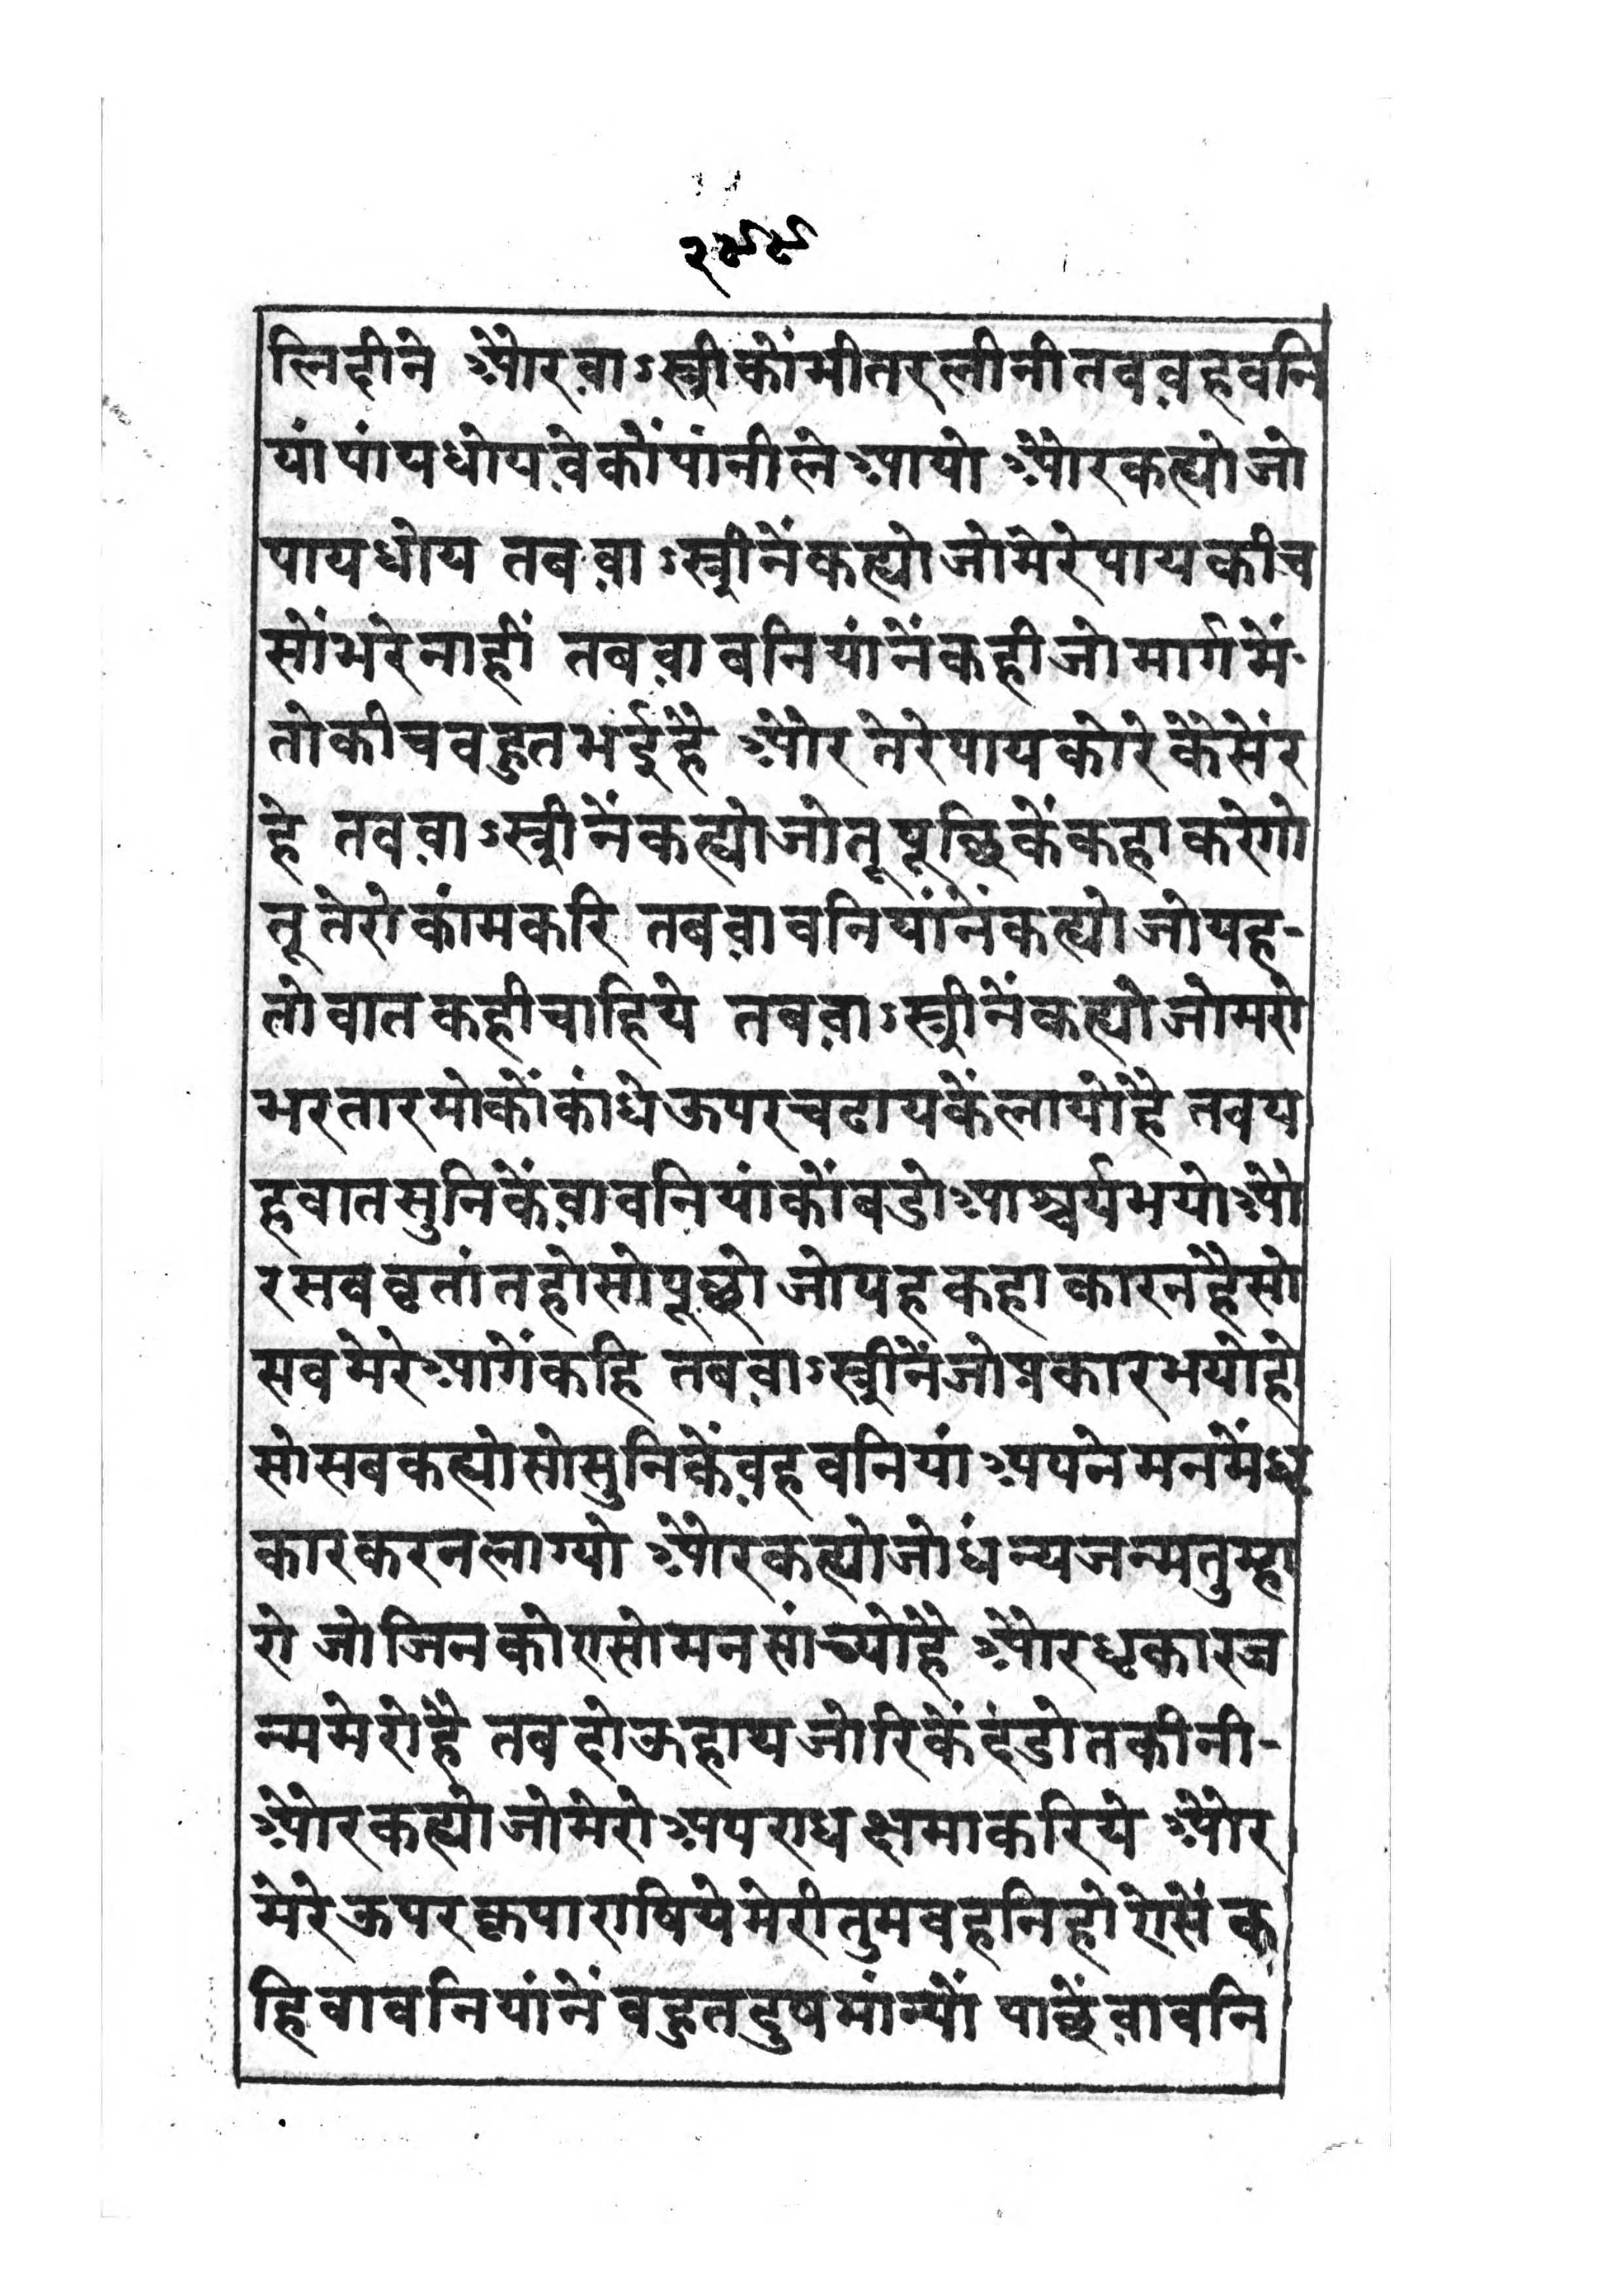 २९९
लिदीने और वा ऽस्त्रीकों भीतर लीनी तव वह वनि
यां पांय धोयवेकों पांनी ले आयो और कह्यो जो
पाय धोय तब वा ऽस्त्रीनें कह्यो जो मेरे पाय कीच
सों भरे नाहीं तब वा बनियांनें कही जो मार्ग में
तो कीच वहुत भई है और तेरे पाय कोरे केसें र
हे तव वा ऽस्त्रीनें कह्यो जो तू पूछिकें कहा करेगो
तू तेरो कांम करि तब वा वनियांनें कह्यो जो यह-
तो वात कही चाहिये तब वा ऽस्त्रीनें कह्यो जो मेरो
भरतार मोकों कांधे ऊपर चढायकें लायो है तव य
ह वात सुनिकें वा वनियांकों बडो आश्चर्य भयो औ
र सब वृतांत हो सो पूछो जो यह कहा कारन है सो
सव मेरे आगें कहि तब वा ऽस्त्रीनें जो प्रकार भयो हो
सो सब कह्यो सो सुनिकें वह वनियां अपने मनमें धृ
कार करन लाग्यो और कह्यो जो धंन्य जन्म तुम्हा
रो जो जिनको एसो मन सांच्यो है और धृकार ज
न्म मेरो है तब दोऊ हाथ जोरिकें दंडोत कीनी-
और कह्यो जो मेरो अपराध क्षमा करिये और
मेरे ऊपर कृपा राषिये मेरी तुम वहनि हो ऐसें क
हि वा वनियांनें बहुत दुष मांन्यों पाछें वा वनि